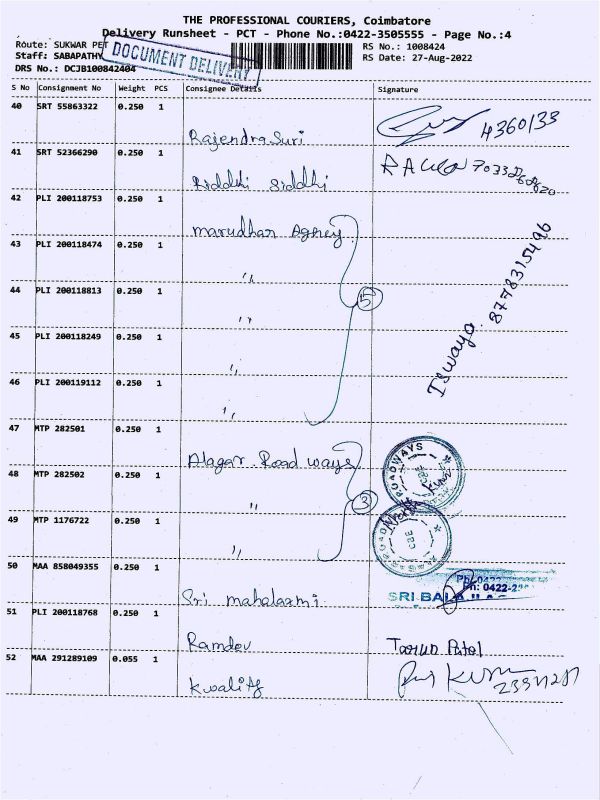 THE PROFESSIONAL COURIERS, Coimbatore
Delivery Runsheet - PCT - Phone No.:0422-3505555 - Page No.:4
Route: SUKWAR PET RS No.: 1008424
Staff: SABAPATHY RS Date: 27-Aug-2022
DOCUMENT DELIVERY
DRS No.: DCJB100842404
S No Consignment No Weight PCS Consignee Details Signature
40 SRT 55863322 0.250 1
Rajendra Suri 4360133
41 SRT 52366290 0.250 1
Riddhi Siddhi
42 PLI 200118753 0.250 1
Marudhar Agncy
43 PLI 200118474 0.250 1
"
44 PLI 200118813 0.250 1 5
"
45 PLI 200118249 0.250 1
"
Iswaya 8778315496
46 PLI 200119112 0.250 1
"
47 MTP 282501 0.250 1
Alagar Road ways ROADWAYS CBE
48 MTP 282502 0.250 1
" 3
49 MTP 1176722 0.250 1
" CBE
50 MAA 858049355 0.250 1
Sri mahalaxmi SRI BALAJI
51 PLI 200118768 0.250 1
Ramdev Tarun Patel
52 MAA 291289109 0.055 1
Kwality